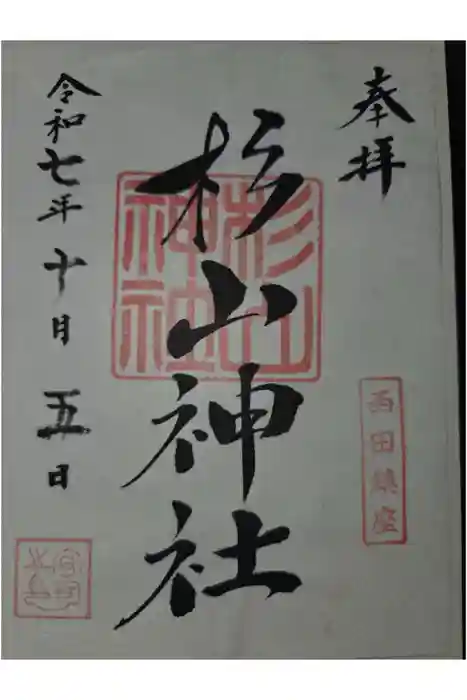 奉拝
西田鎮座
杉山神社
杉山
神社
令和七年十月五日